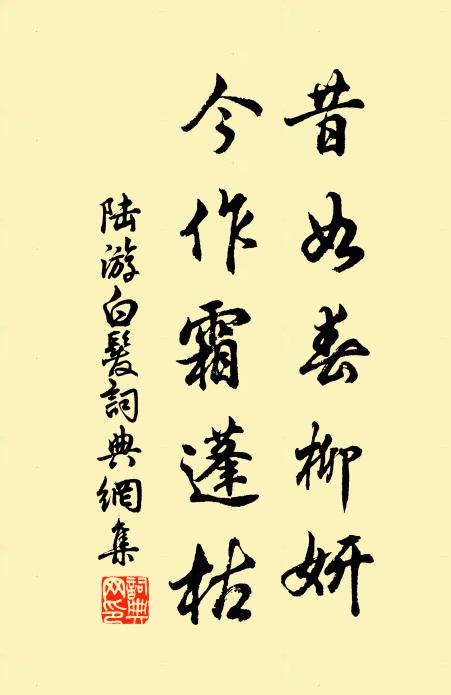 昔如春柳妍
今作霜蓬枯
陆游白髮詞典網集
詞典网印